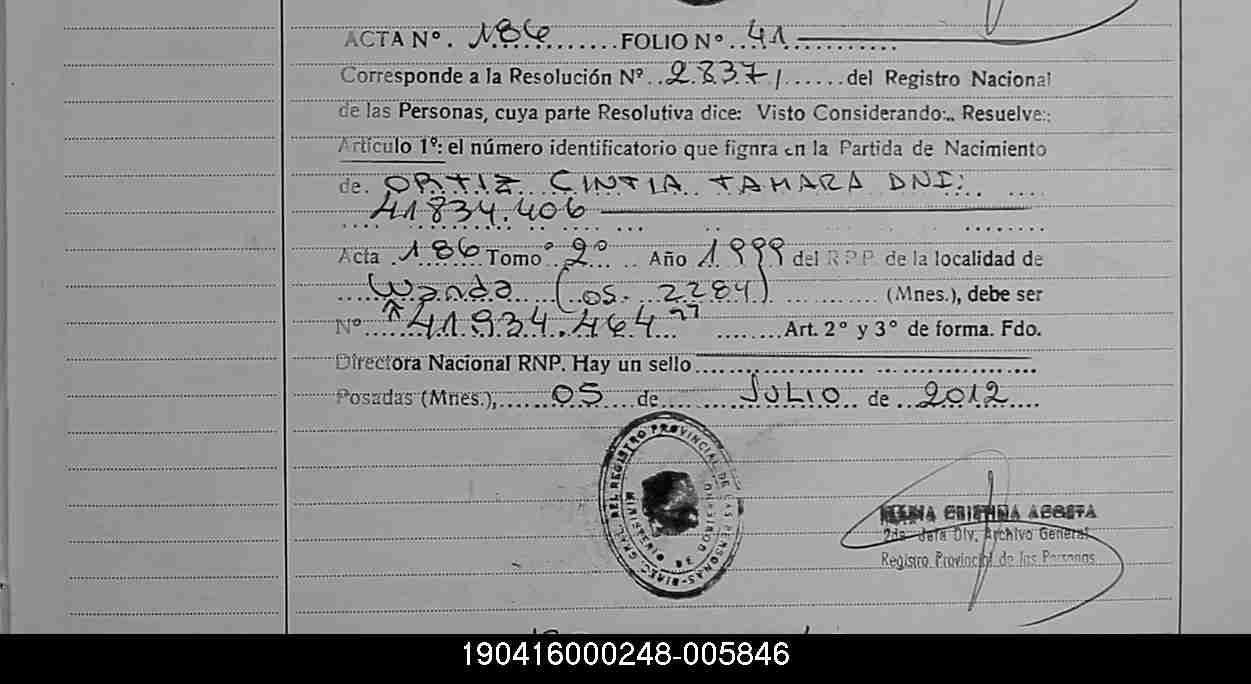 ACTA N° . 186 ............ FOLIO N° .. 41 ............
Corresponde a la Resolución N° .. 2.837/ ...... del Registro Nacional
de las Personas, cuya parte Resolutiva dice: Visto Considerando:.. Resuelve:.
Artículo 1°: el número identificatorio que fignra en la Partida de Nacimiento
de. ORTIZ CINTIA TAMARA DNI:
41.834.406
Acta . 186 Tomo 2° .. Año 1.999 del R P P de la localidad de
.... Wanda (os. 2284) .......... (Mnes.), debe ser
N° .. "41.934.464" ........ Art. 2° y 3° de forma. Fdo.
Directora Nacional RNP. Hay un sello ....................
Posadas (Mnes.), ...... 05 ... de ........ JULIO .. de .. 2012 ....
DEL REGISTRO PROVINCIAL DE LAS PERSONAS
MINISTERIO DE GOBIERNO
MARIA CRISTINA ACOSTA
2da. Jefa Div. Archivo General
Registro Provincial de las Personas
190416000248-005846